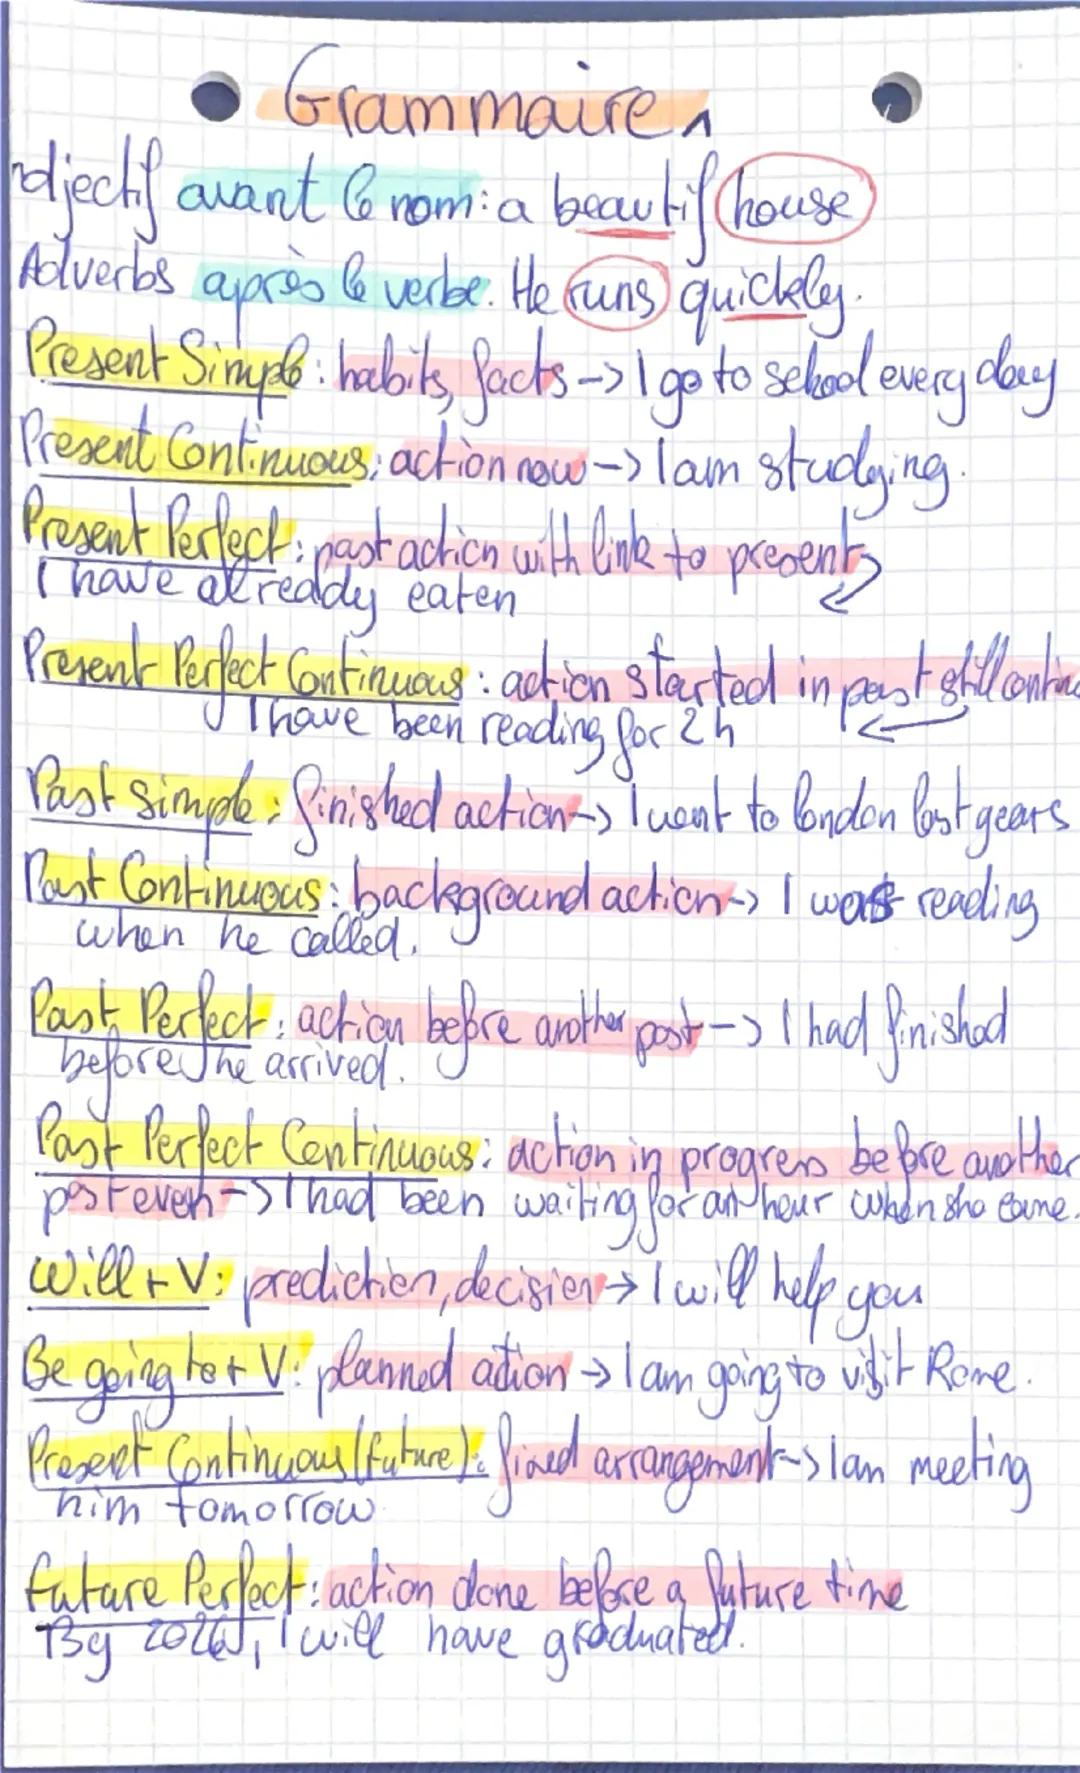 Grammaire
adjectif avant le nom: a beautif house
Adverbs après le verbe. He runs quickley.
Present Simple: habits, facts -> I go to school every day
Present Continuous: action now -> I am studying.
Present Perfect: past action with link to present
I have already eaten
Present Perfect Continuous: action started in past still continu
I have been reading for 2h
Past simple: finished action -> I went to london last years
Past Continuous: background action -> I was reading
when he called.
Past Perfect: action before another past -> I had finished
before he arrived.
Past Perfect Continuous: action in progress before another
past even -> I had been waiting for an hour when she came.
Will + V: prediction, decision -> I will help you
Be going to + V: planned action -> I am going to visit Rome.
Present Continuous (future): fixed arrangement -> I am meeting
him tomorrow
Future Perfect: action done before a future time
By 2026, I will have graduated.